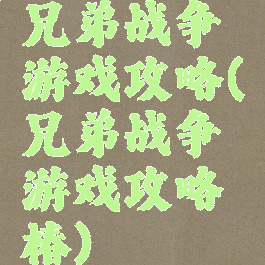 兄弟战争
游戏攻略(
兄弟战争
游戏攻略
椿)